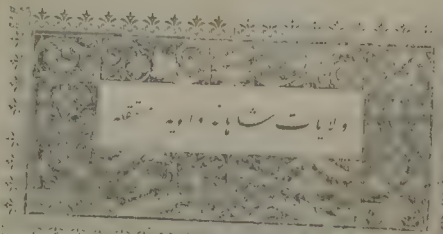 ولايات شاهانه والويه مستقله